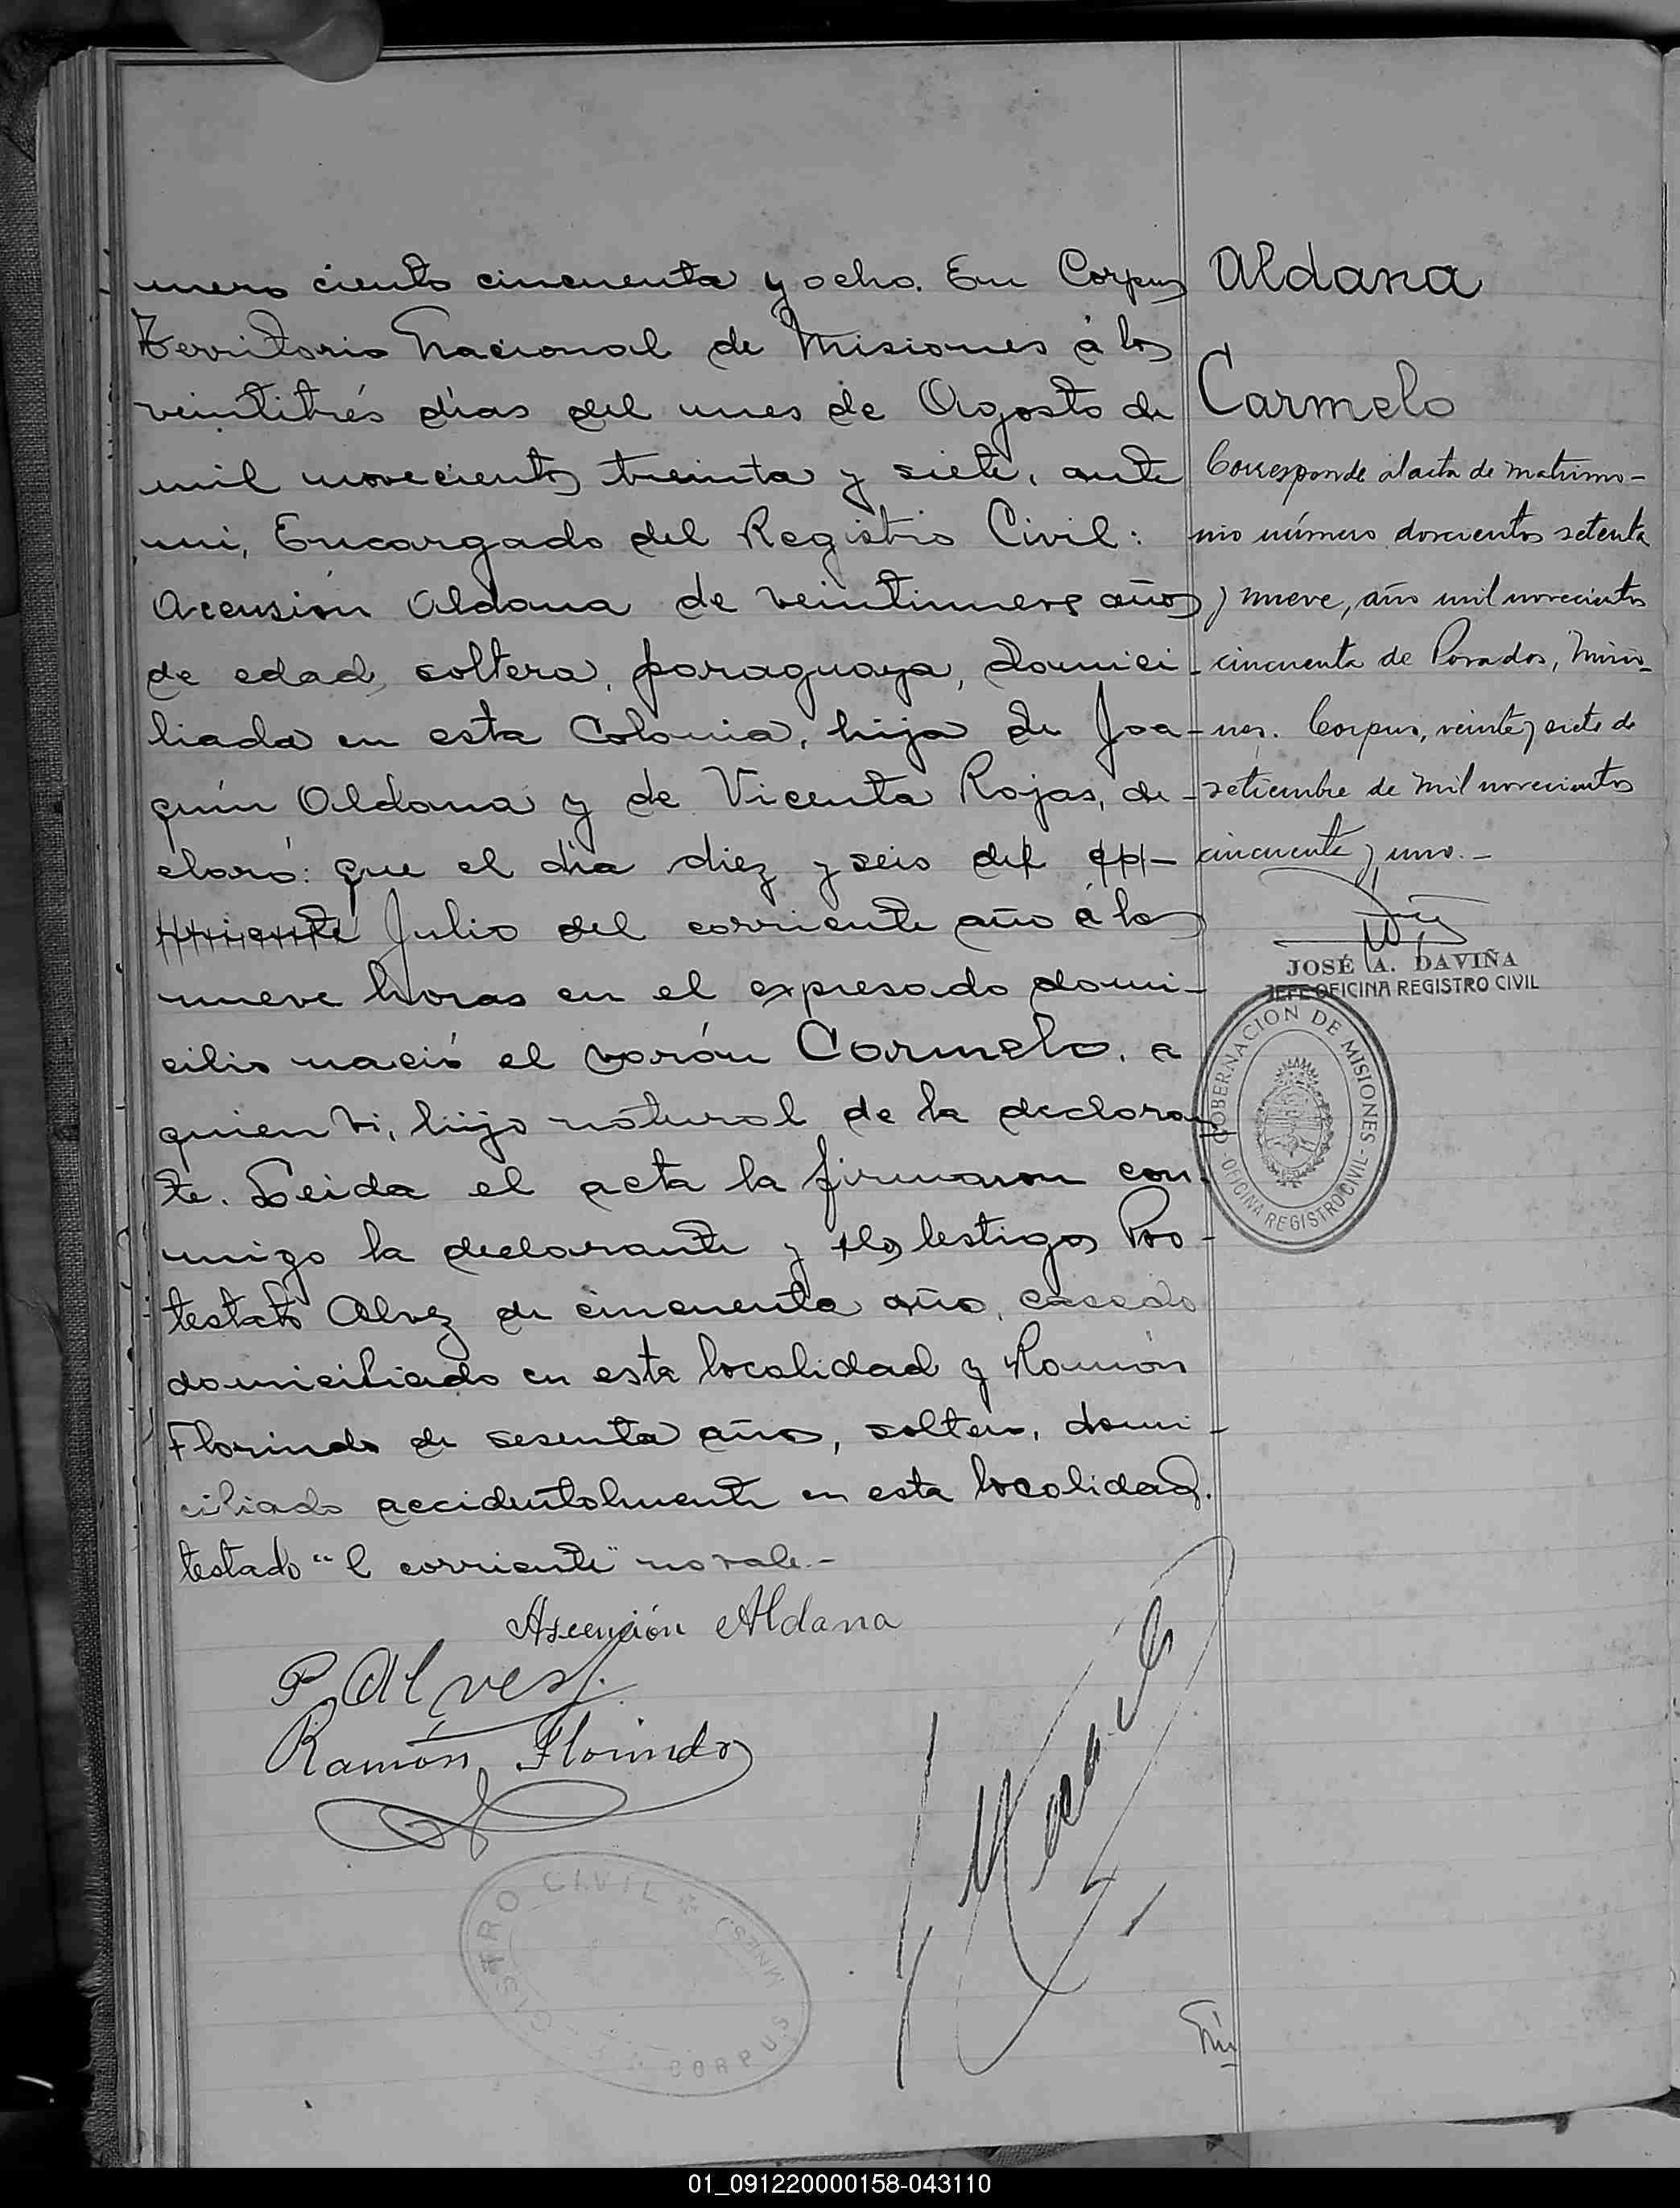 mero ciento cincuenta y ocho. En Corpus
Territorio Nacional de Misiones á los
veintitrés días del mes de Agosto de
mil novecientos treinta y siete, ante
mi, Encargado del Registro Civil:
Acensión Aldana de veintinueve años
de edad, soltera, paraguaya, domici-
liada en esta Colonia, hija de Joa-
quín Aldana y de Vicenta Rojas, de-
claró: que el día diez y seis del co-
rriente Julio del corriente año á las
nueve horas en el expresado domi-
cilio nació el varón Carmelo, a
quien vi, hijo natural de la declaran
te. Leida el acta la firmaron con
migo la declarante y los testigos Pro-
testato Alvez de cincuenta año, casado
domiciliado en esta localidad y Ramón
Florindo de sesenta años, soltero, domi-
ciliado accidentalmente en esta localidad.
testado "l corriente" no vale.-
Ascención Aldana
P. Alves
Ramón Florindo
Aldana
Carmelo
Corresponde al acta de matrimo-
nio número doscientos setenta
y nueve, año mil novecientos
cincuenta de Posadas, Misio-
nes. Corpus, veinte y siete de
setiembre de mil novecientos
cincuenta y uno.-
JOSÉ A. DAVIÑA
JEFE OFICINA REGISTRO CIVIL
GOBERNACION DE MISIONES
- OFICINA REGISTRO CIVIL -
CIVIL * (MNES)
CORPUS
01_091220000158-043110